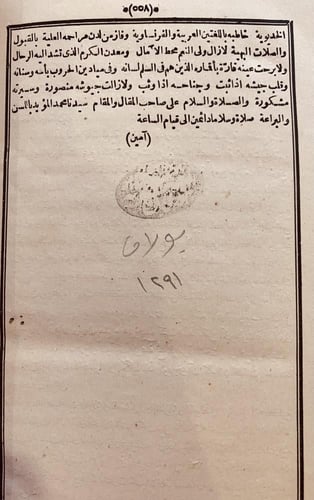 *(٥٥٨)*
الخديوية خاطبه باللغتين العربية والفرنساوية وفاز من لدن مراحمه العلية بالقبول
والصلات البهية لازال ولى النعم محط الآمال ومعدن الكرم الذى تشد اليه الرحال
ولا برحت عينه قارّة بأقماره الذين هم فى السلم لسانه وفى ميادين الحروب بأسه وسنانه
وقلب جيشه اذا ثبت وجناحه اذا وثب ولازالت جيوشه منصورة وسيرته
مشكورة والصلاة والسلام على صاحب المقال والمقام سيدنا محمد المؤيد باللسن
والبراعة صلاة وسلاما دائمين الى قيام الساعة
(آمين)
بولاق
١٢٩١